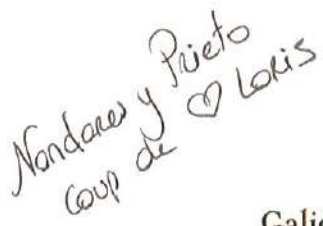 Nandares y Prieto
Coup de ♡ Loris
Galic